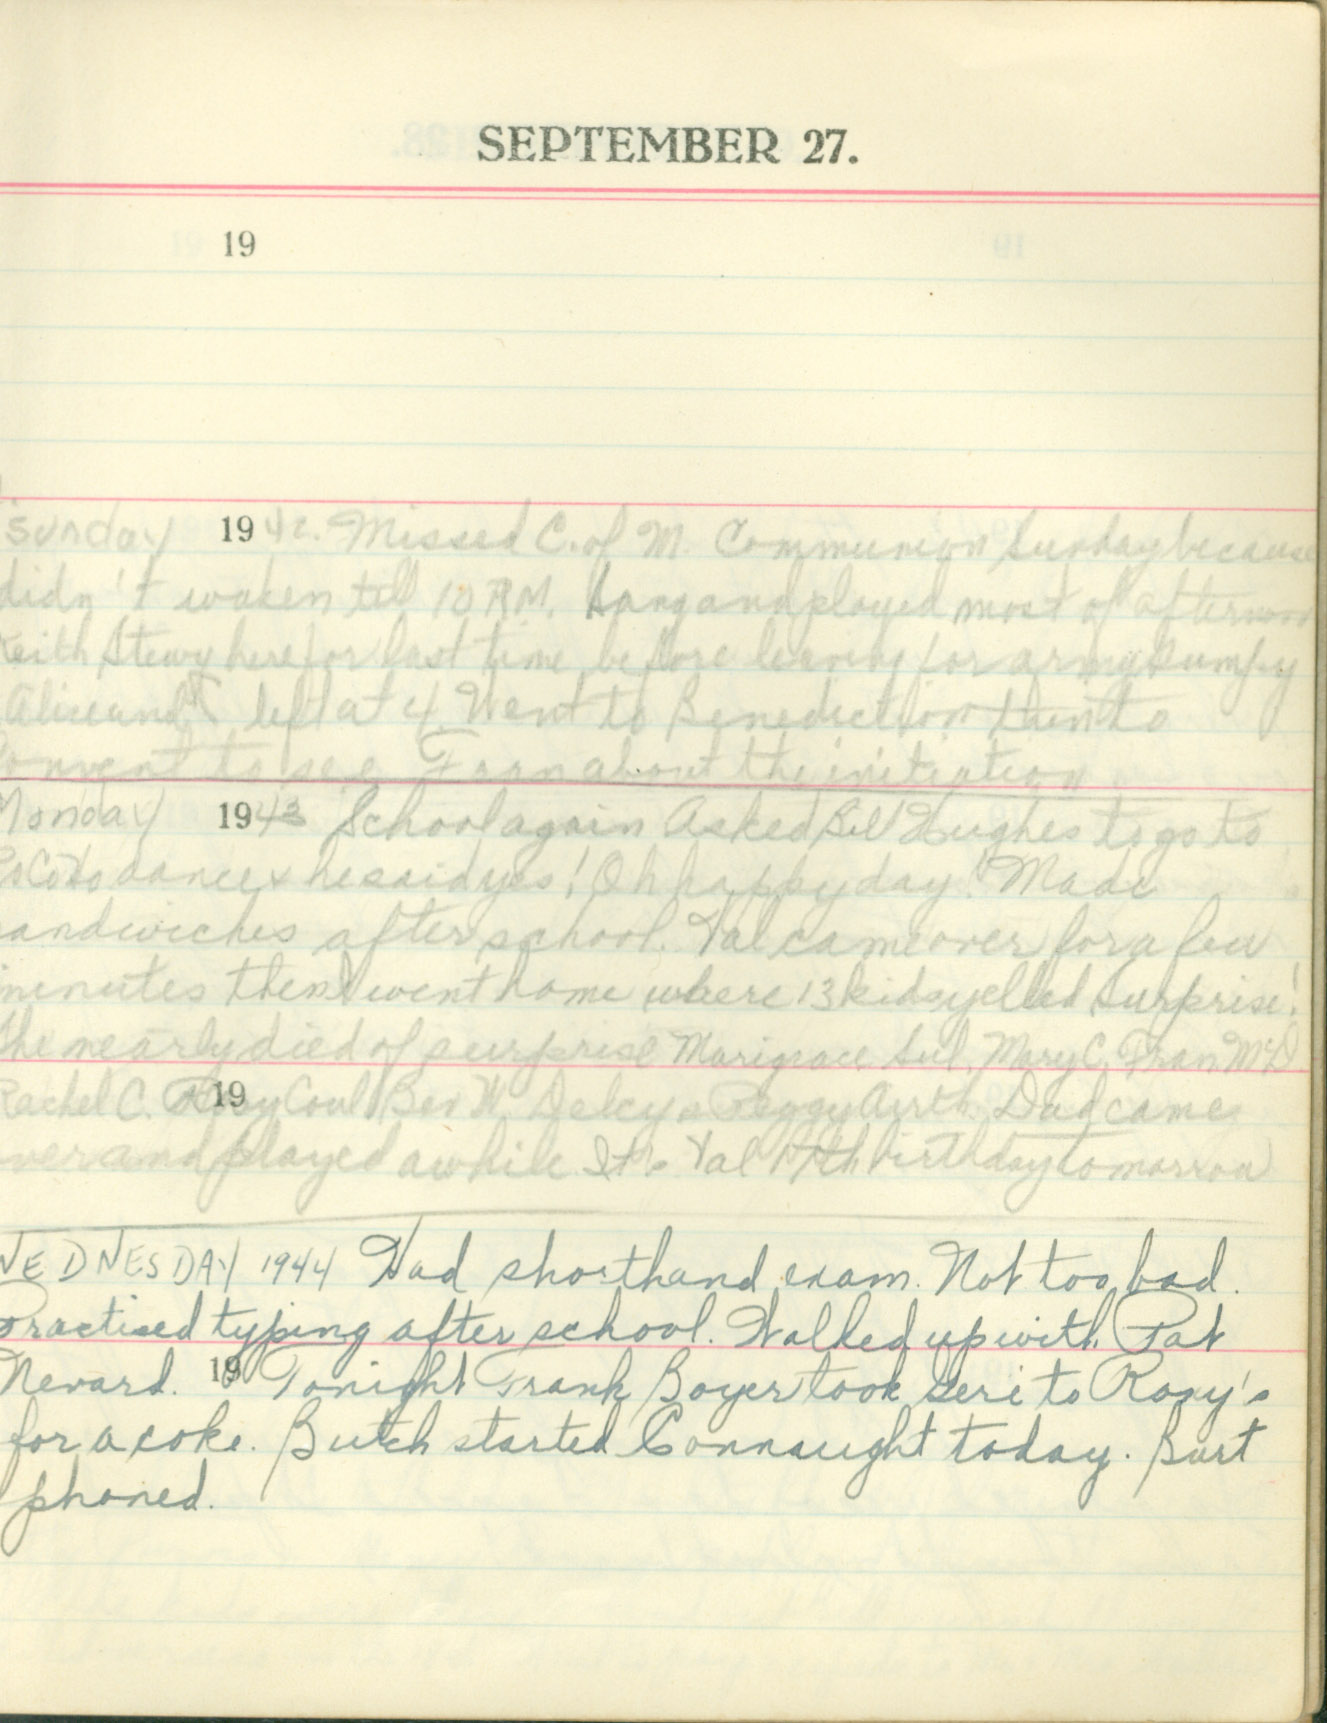 SEPTEMBER 27.
19
Sunday 1942. Missed C. of M. Communion Sunday because
didn't waken till 10 A.M. Sang and played most of afternoon
Keith Stewy here for last time before leaving for army Bumpy
Alice and I left at 4. Went to Benediction then to
Convent to see Fran about the initiation
Monday 1943 School again Asked Bill Hughes to go to
dance & he said yes! Oh happy day! Made
sandwiches after school. Val came over for a few
minutes then I went home where 13 kids yelled Surprise!
She nearly died of surprise Marigrace Sul, Mary C, Fran McD
Rachel C. 19 Coul Bev W. Delcy & Peggy Airth. Dad came
over and played awhile It's Val's 17th birthday tomorrow
WEDNESDAY 1944 Had shorthand exam. Not too bad.
Practised typing after school. Walked up with Pat
Nevard. 19 Tonight Frank Boyer took Geri to Roxy's
for a coke. Butch started Connaught today. Burt
phoned.